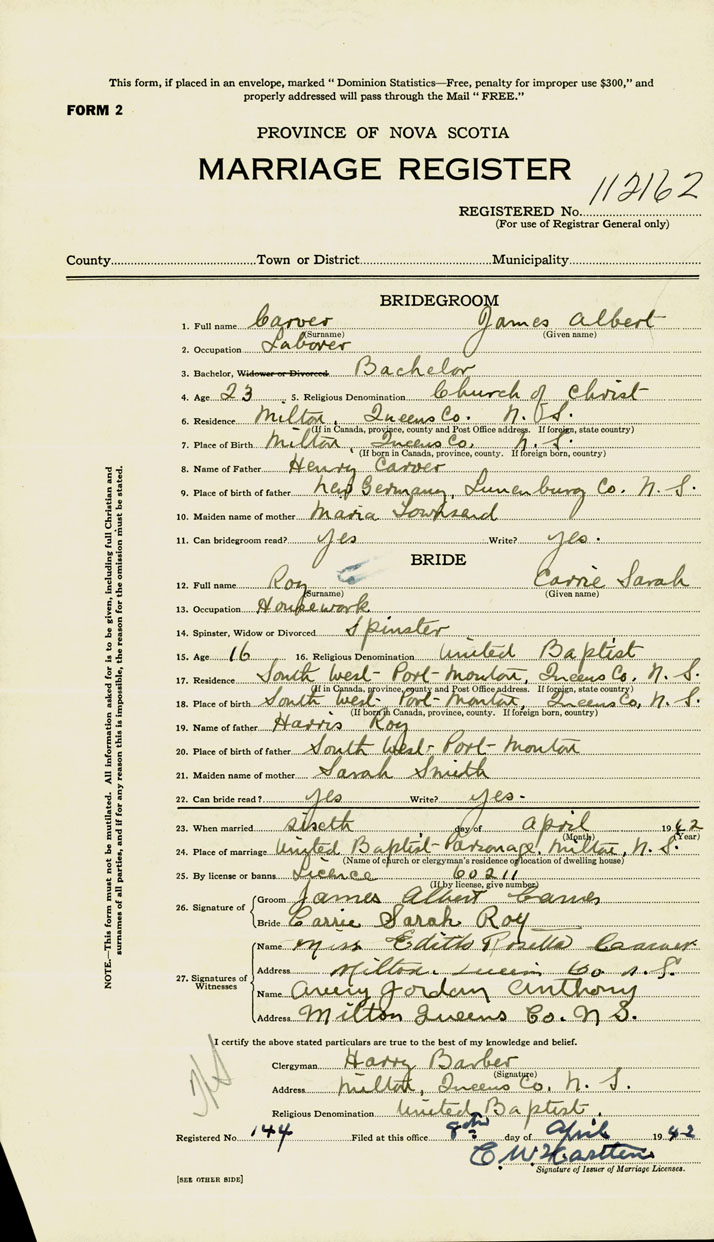 This form, if placed in an envelope, marked " Dominion Statistics—Free, penalty for improper use $300," and
properly addressed will pass through the Mail " FREE."
FORM 2
PROVINCE OF NOVA SCOTIA
MARRIAGE REGISTER
112162
REGISTERED No.
(For use of Registrar General only)
County Town or District Municipality
BRIDEGROOM
1. Full name Carver James Albert
(Surname) (Given name)
2. Occupation Laborer
3. Bachelor, Widower or Divorced Bachelor
4. Age 23 5. Religious Denomination Church of Christ
6. Residence Milton, Queens Co. N. S.
(If in Canada, province, county and Post Office address. If foreign, state country)
7. Place of Birth Milton, Queens Co. N. S.
(If born in Canada, province, county. If foreign born, country)
8. Name of Father Henry Carver
9. Place of birth of father New Germany, Lunenburg Co. N. S.
10. Maiden name of mother Maria Townsend
11. Can bridegroom read? yes Write? yes.
BRIDE
12. Full name Roy Carrie Sarah
(Surname) (Given name)
13. Occupation Housework
14. Spinster, Widow or Divorced Spinster
15. Age 16 16. Religious Denomination United Baptist
17. Residence South West Port Mouton, Queens Co, N. S.
(If in Canada, province, county and Post Office address. If foreign, state country)
18. Place of birth South West Port Mouton, Queens Co, N. S.
(If born in Canada, province, county. If foreign born, country)
19. Name of father Harris Roy
20. Place of birth of father South West Port Mouton
21. Maiden name of mother Sarah Smith
22. Can bride read? yes Write? yes.
23. When married day of April 1942
(Month) (Year)
24. Place of marriage United Baptist Parsonage, Milton, N. S.
(Name of church or clergyman's residence or location of dwelling house)
25. By license or banns Licence 60211
(If by license, give number)
26. Signature of Groom James Albert Carver
Bride Carrie Sarah Roy
27. Signatures of Witnesses
Name Miss Edith Rosetta Carver
Address Milton Queens Co N. S.
Name Avery Jordan Anthony
Address Milton Queens Co. N S.
I certify the above stated particulars are true to the best of my knowledge and belief.
Clergyman Harry Barber
(Signature)
Address Milton, Queens Co, N. S.
Religious Denomination United Baptist.
Registered No 144 Filed at this office 8th day of April 1942
C. W. Hartlen
Signature of Issuer of Marriage Licenses.
[SEE OTHER SIDE]
NOTE.—This form must not be mutilated. All information asked for is to be given, including full Christian and
surnames of all parties, and if for any reason this is impossible, the reason for the omission must be stated.